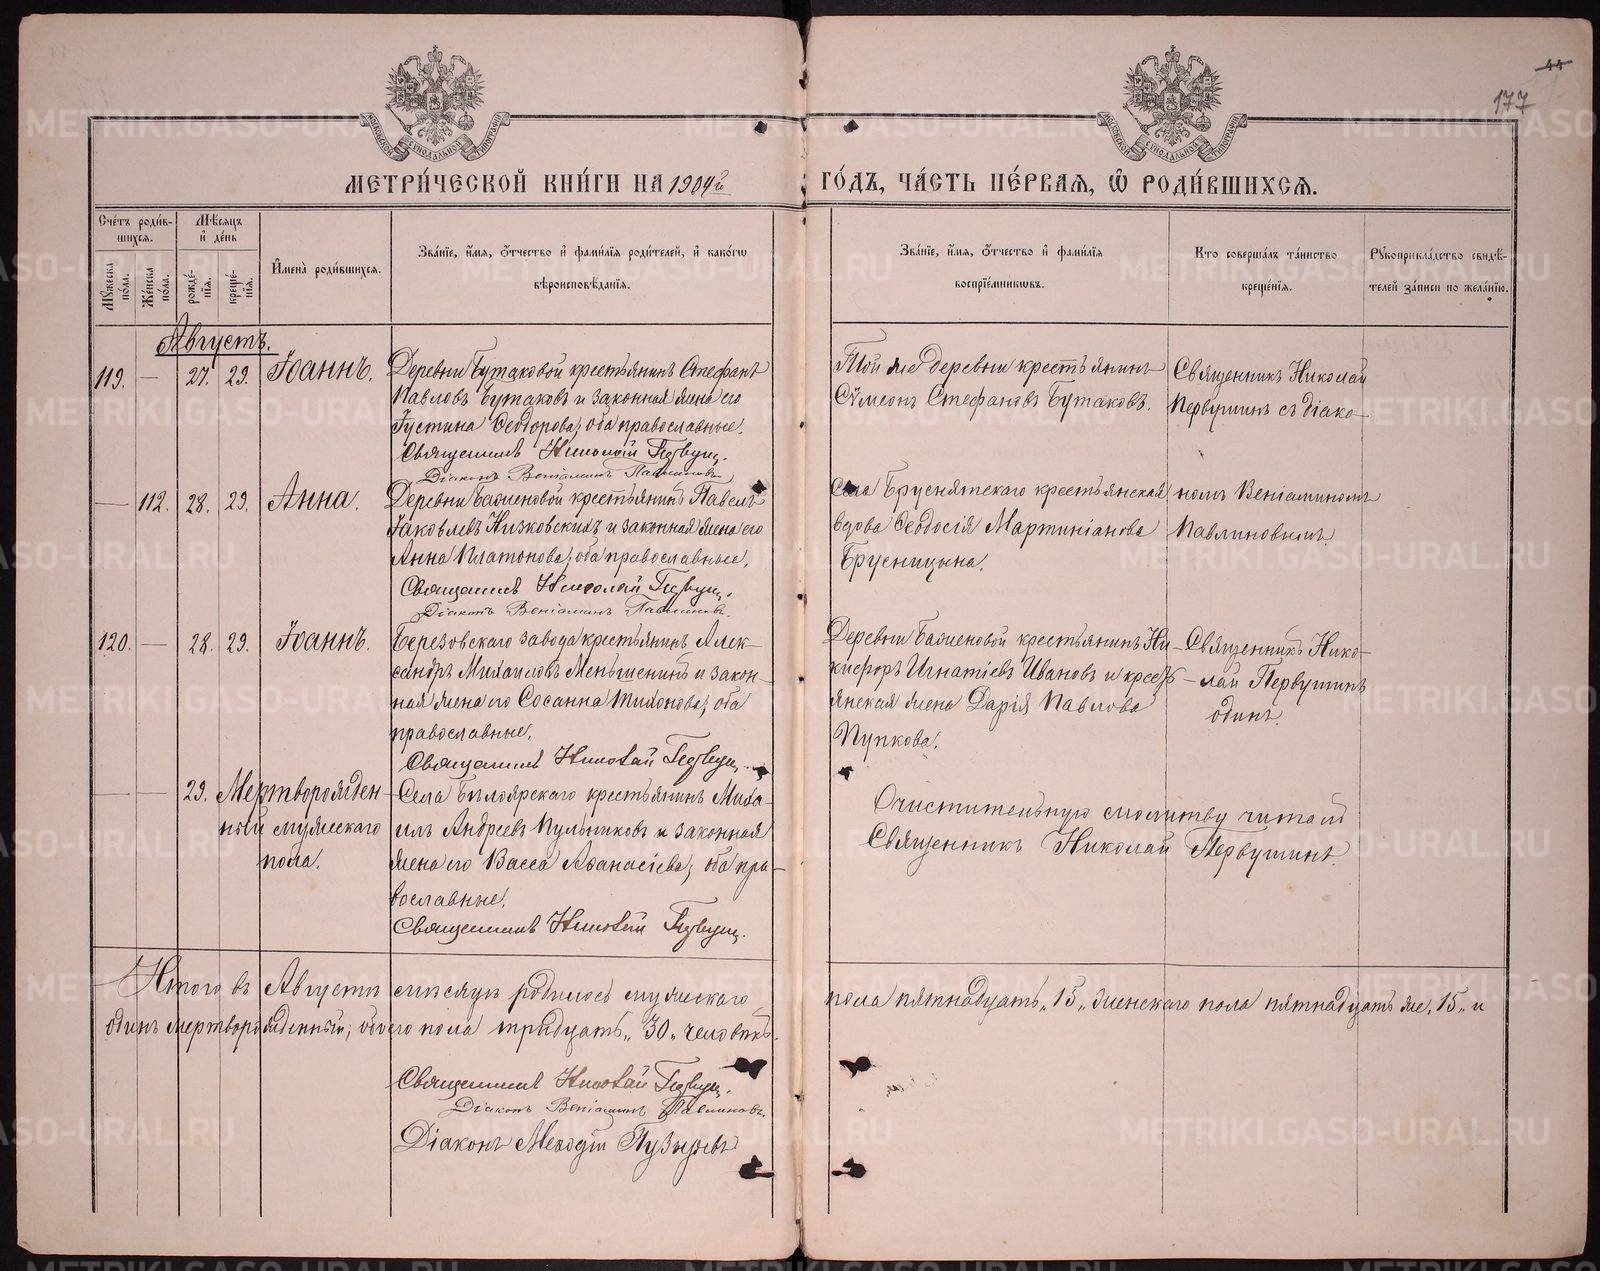 44
177
МЕТРИ́ЧЕСКОЙ КНИ́ГИ НА 1904й
ГО́ДЪ, ЧА́СТЬ ПЕ́РВАЯ, Ѽ РОДИ́ВШИХСЯ.
Сче́тъ роди́в-
шихся.
Му́жеска по́ла.
Же́нска по́ла.
Мѣ́сяцъ
и҆ де́нь
рожде́-
нїя.
креще́-
нїя.
И҆мена̀ роди́вшихся.
Зва́нїе, и҆́мя, ѻ҆́тчество и҆ фами́лїя роди́телей, и҆ како́гѡ
вѣроисповѣ́данїя.
Зва́нїе, и҆́мя, ѻ҆́тчество и҆ фами́лїя
воспрїе́мникѡвъ.
Кто соверша́лъ та́инство
креще́нїя.
Рꙋкоприкла́дство свидѣ́-
телей за́писи по жела́нїю.
Августъ.
119. — 27. 29. Іоаннъ.
Деревни Бутаковой крестьянинъ Стефанъ
Павловъ Бутаковъ и законная жена его
Іустина Ѳеодорова; оба православные.
Священникъ Николай Первуш.
Діаконъ Веніаминъ Павлиновъ
Той же деревни крестьянинъ
Сѵмеонъ Стефановъ Бутаковъ.
Священникъ Николай
Первушинъ съ діако-
— 112. 28. 29. Анна.
Деревни Баженовой крестьянинъ Павелъ
Іаковлевъ Низковскихъ и законная жена его
Анна Платонова; оба православные.
Священникъ Николай Первуш.
Діаконъ Веніаминъ Павлиновъ.
Села Бруснятскаго крестьянская
вдова Ѳеодосія Мартиніанова
Брусницына.
номъ Веніаминомъ
Павлиновымъ.
120. — 28. 29. Іоаннъ.
Березовскаго завода крестьянинъ Алек-
сандръ Михаиловъ Меньшенинъ и закон-
ная жена его Сосанна Тихонова; оба
православные.
Священникъ Николай Первуш.
Деревни Баженовой крестьянинъ Ни-
кифоръ Игнатіевъ Ивановъ и кресть-
янская жена Дарія Павлова
Пупкова.
Священникъ Нико-
лай Первушинъ
одинъ.
— — 29. Мертворожден-
ный мужескаго
пола.
Села Бѣлоярскаго крестьянинъ Миха-
илъ Андреевъ Пульниковъ и законная
жена его Васса Аѳанасіева; оба пра-
вославные.
Священникъ Николай Первуш.
Очистительную молитву читалъ
Священникъ Николай Первушинъ.
Итого въ Августѣ мѣсяцѣ родилось мужескаго
пола пятнадцать „15„ женскаго пола пятнадцать же „15„ и
одинъ мертворожденный; обоего пола тридцать „30„ человѣкъ.
Священникъ Николай Первуш.
Діаконъ Веніаминъ Павлиновъ.
Діаконъ Меѳодій Пузыревъ